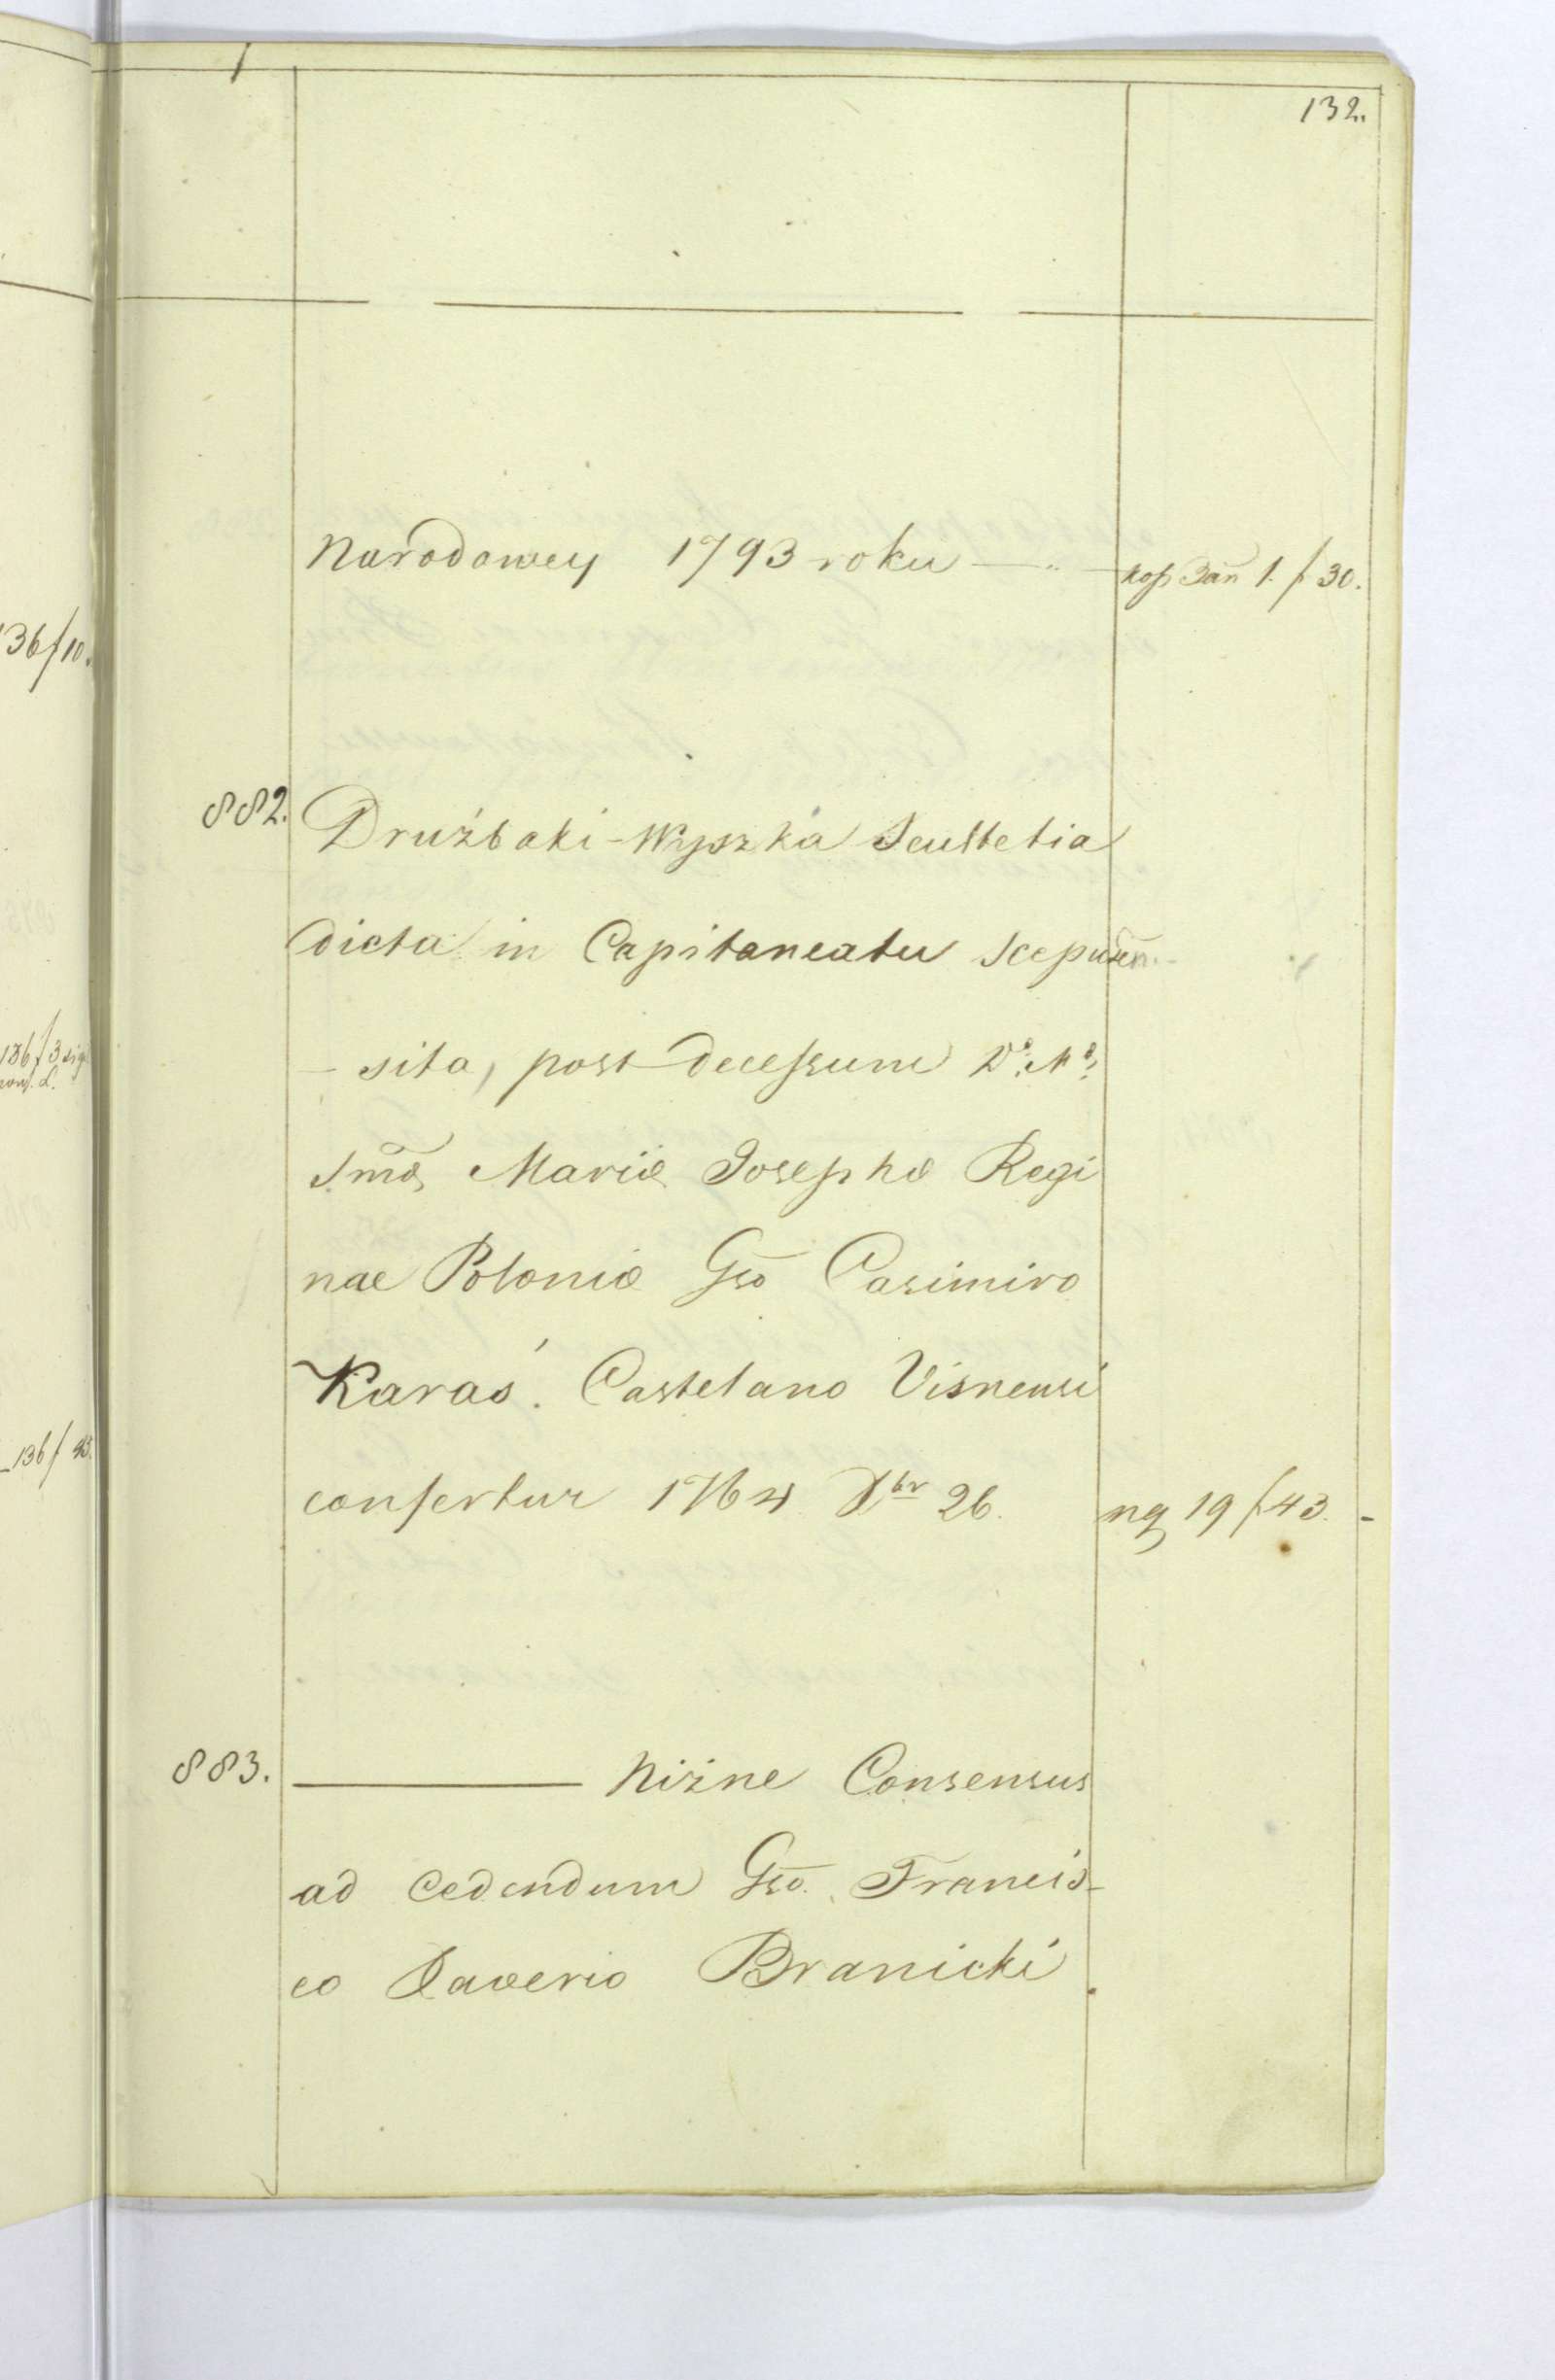 132.
Narodowey 1793 roku — kop Zañ 1. f 30.
136 f 10.
882. Drużbaki-Wyszka Scultetia
dicta in Capitaneatu Scepusien̄.
sita, post decessum
136 f 3
Smæ Mariæ Josephæ Regi
nae Poloniæ Gso Casimiro
Karaś. Castelano Visnensi
136 f
confertur 1764 Xbr 26. ng 19 f 43. -
883. ——— Niżne Consensus
ad cedendum Gso. Francis-
co Xaverio Branicki